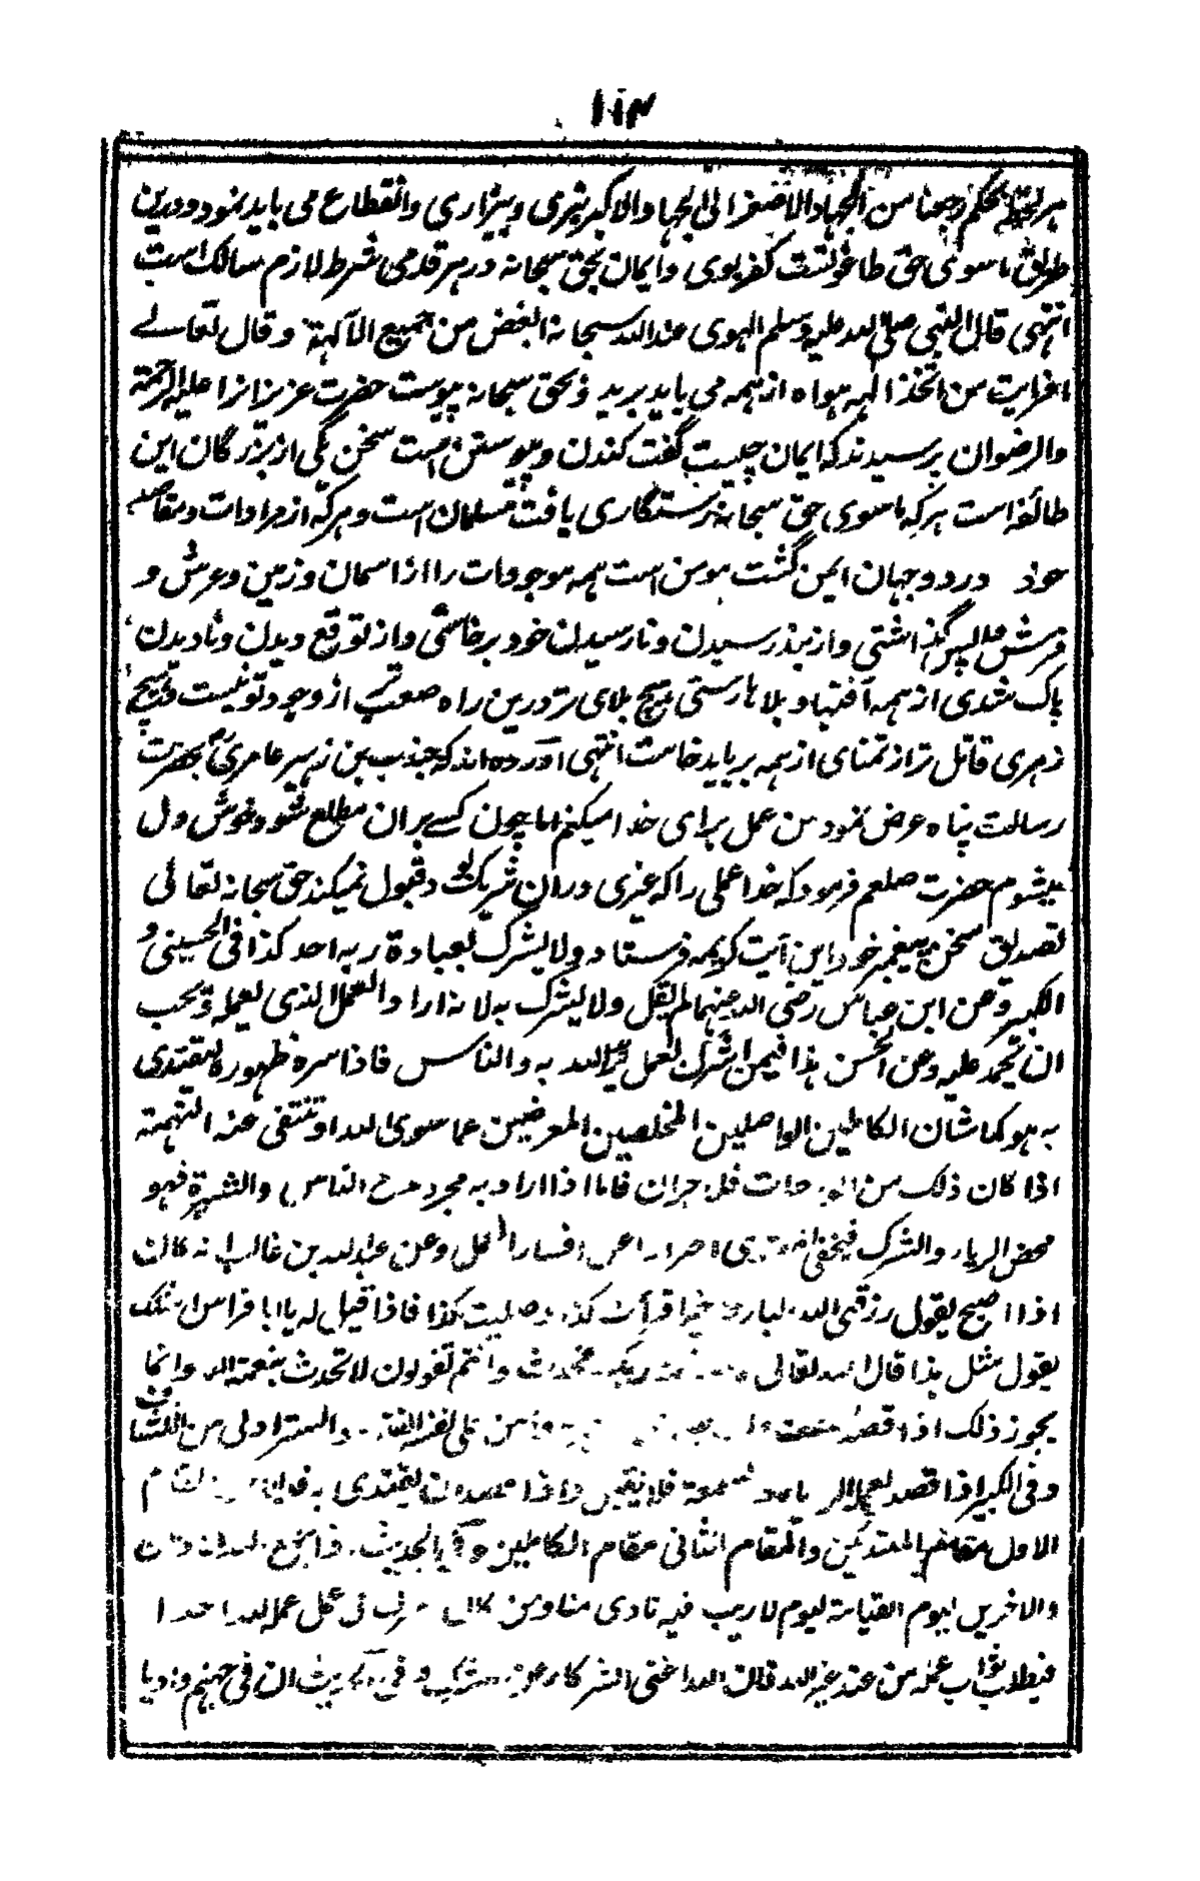 ۱۱۳
هر لحظه بحکم رجعنا من الجهاد الاصغر الی الجهاد الاکبر تبری و بیزاری و انقطاع می باید نمود و درین
طریق ماسوی حق طاغوتست کفر بوی و ایمان بحق سبحانه در هر قدمی شرط لازم سالک است
انتهی قال النبی صلی الله علیه وسلم الهوی عند الله سبحانه ابغض من جمیع الآلهة و قال تعالے
افرایت من اتخذ الهه هواه از همه می باید برید و بحق سبحانه پیوست حضرت عزیزانرا علیه الرحمة
والرضوان پرسیدند که ایمان چیست گفت کندن و پیوستن است سخن یکی از بزرگان این
طائفه است هر که از ماسوی حق سبحانه رستگاری یافت مسلمان است و هر که از مرادات و مقاصد
خود در دو جهان ایمن گشت مومن است همه موجودات را از اسمان و زمین و عرش و
فرش پس گذاشتی و از بند رسیدن و نارسیدن خود برخاستی و از توقع دیدن و نادیدن
پاک شدی از همه آفتها و بلاها رستی هیچ بلای تر درین راه صعب تر از وجود تو نیست و هیچ
زهری قاتل تر از تمنای از همه بر باید خاست انتهی آورده اند که جندب بن زهیر عامری بحضرت
رسالت پناه عرض نمود من عمل برای خدا میکنم اما چون کسے بران مطلع شود خوش دل
میشوم حضرت صلعم فرمود که خدا عملی را که غیری دران شریک بود قبول نمیکند حق سبحانه تعالی
تصدیق سخن پیغمبر خود این آیت کریمه فرستاد ولا یشرک بعبادة ربه احد کذا فی الحسینی و
الکبیر و عن ابن عباس رضی الله عنهما لم یقل ولا یشرک به لانه اراد العمل الذی یعمله و یحب
ان یحمد علیه و عن الحسن هذا فیمن اشرک بعمل یرید الله به والناس فاذا سره ظهوره لیقتدی
به هو کما شان الکاملین الواصلین المخلصین المعرضین عما سوی الله او تنتفی عنه التهمة
اذا کان ذلک من فاما اذا اراد به مجرد مدح الناس والشهرة فهو
محض الریاء والشرک و عن عبد الله بن غالب انه کان
اذا اصبح یقول رزقنی الله البارحة خیرا قرأت کذا و صلیت کذا فاذا قیل له یا ابا فراس امثلک
یقول مثل هذا قال الله تعالی ربک فحدث وانتم تقولون لا تحدث بنعمة الله وانما
یجوز ذلک اذا قصد والستر اولی من
و فی الکبیر اذا قصد فلا یقبل و اذا لیقتدی به
الاول مقام المبتدئین والمقام الثانی مقام الکاملین و فی الحدیث اذا جمع الله الاولین
والاخرین لیوم القیامة لیوم لا ریب فیه نادی مناد من کان فی عمل عمله لله احدا
فیطلب ثواب عمله من عند غیر الله فان الله اغنی الشرکاء عن الشرک و فی الحدیث ان فی جهنم وادیا